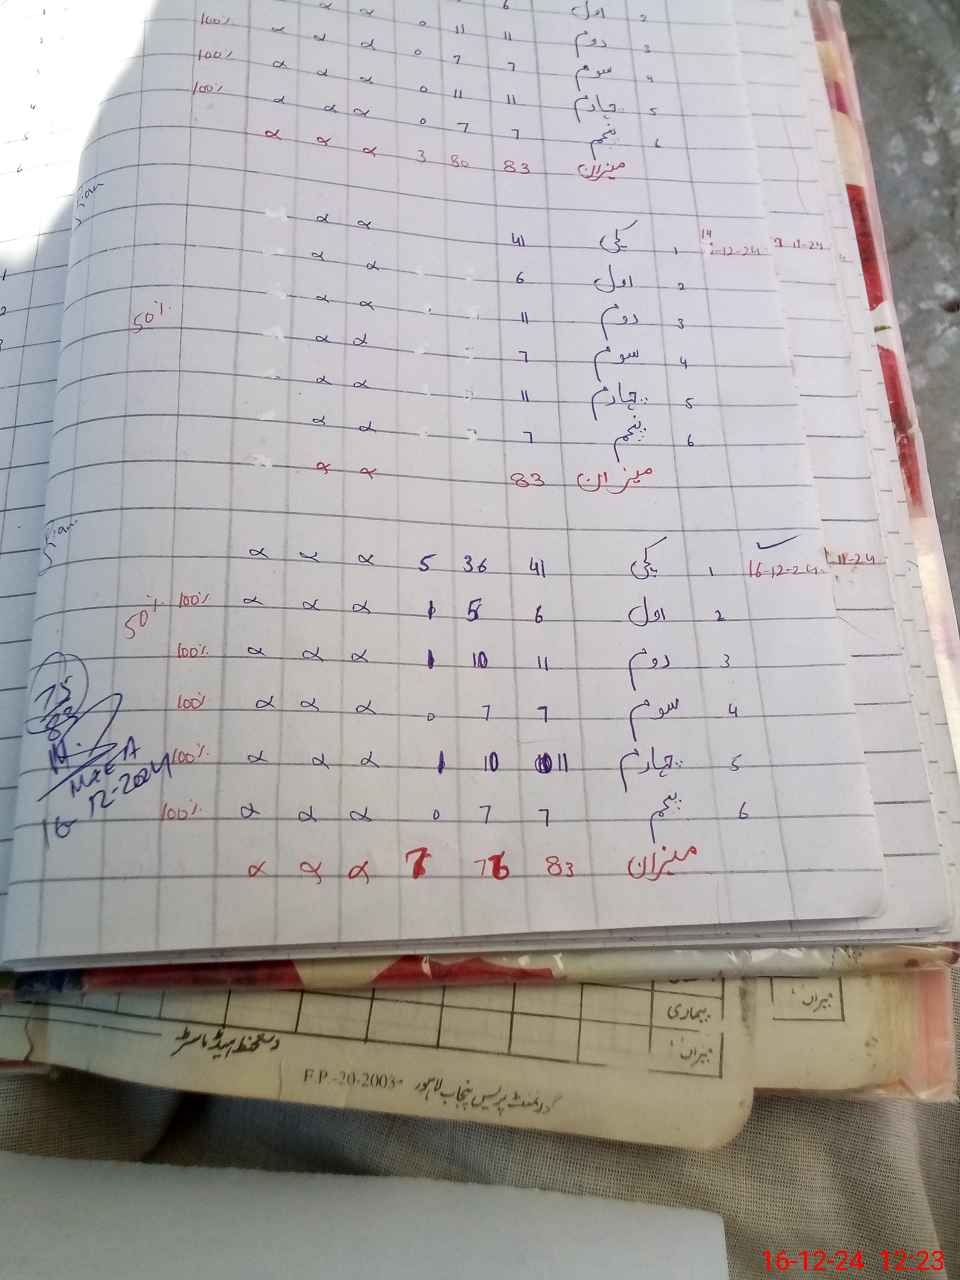 α α 0 11 6 اول 2
100% α α α 0 11 11 دوم 3
100% α α α 0 7 7 سوم 4
100% α α α 0 11 11 چہارم 5
α α α 0 7 7 پنجم 6
α α α 3 80 83 میزان
α α 41 یکی 1 14-12-24
α α 6 اول 2
50% α α 11 دوم 3
α α 7 سوم 4
α α 11 چہارم 5
α α 7 پنجم 6
α α 83 میزان
α α α 5 36 41 یکی 1 16-12-24
50% 100% α α α 1 5 6 اول 2
100% α α α 1 10 11 دوم 3
100% α α α 0 7 7 سوم 4
100% α α α 1 10 11 چہارم 5
100% α α α 0 7 7 پنجم 6
α α α 7 76 83 میزان
75
83
MEA
16-12-2024
بیماری
میزان
میزان
دستخط ہیڈ ماسٹر
F.P.-20-2003- گورنمنٹ پریس پنجاب لاہور
16-12-24 12:23